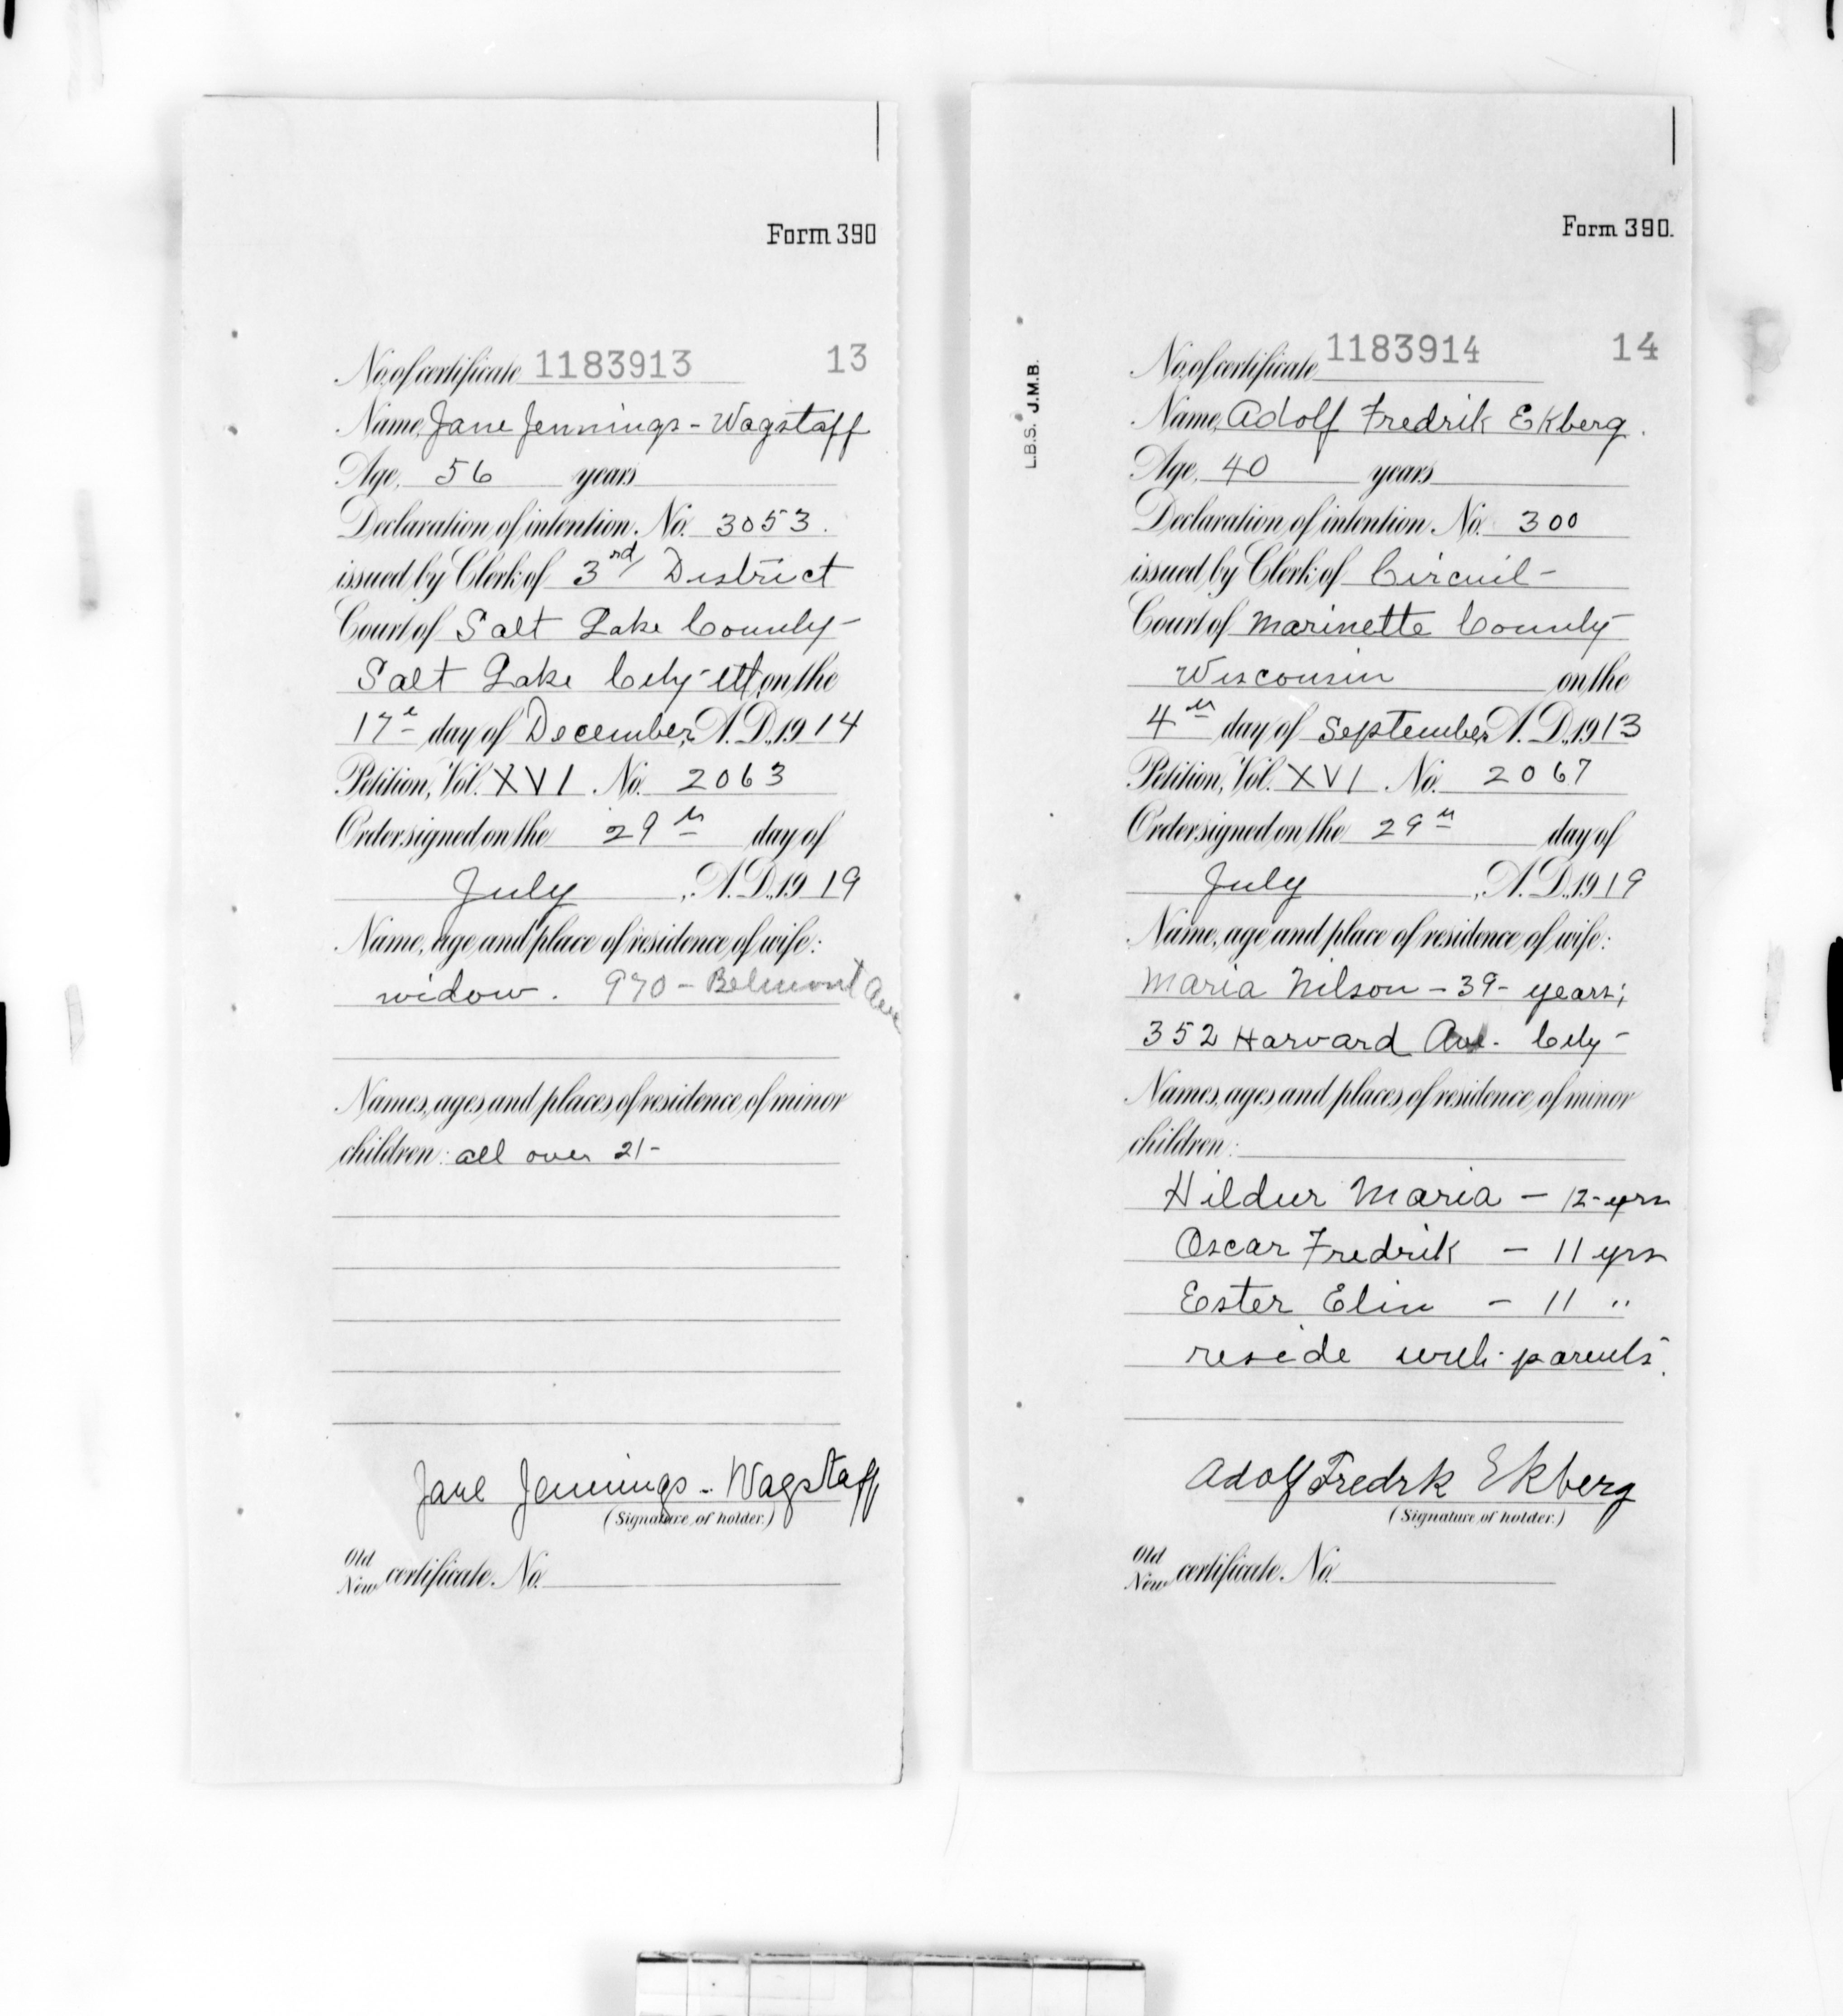 Form 390
No. of certificate 1183913 13
Name, Jane Jennings - Wagstaff
Age, 56 years
Declaration of intention, No. 3053.
issued by Clerk of 3rd District
Court of Salt Lake County -
Salt Lake City - Ut, on the
17th day of December, A.D., 1914
Petition, Vol. XVI. No. 2063
Order signed on the 29th day of
July, A.D., 1919
Name, age and place of residence of wife:
widow. 970 - Belmont Ave
Names, ages and places of residence of minor
children: all over 21 -
Jane Jennings - Wagstaff
(Signature of holder.)
Old
New certificate. No.
Form 390.
L.B.S. J.M.B.
No. of certificate 1183914 14
Name, Adolf Fredrik Ekberg.
Age, 40 years
Declaration of intention, No. 300
issued by Clerk of Circuit -
Court of Marinette County
Wisconsin on the
4th day of September, A.D., 1913
Petition, Vol. XVI. No. 2067
Order signed on the 29th day of
July, A.D., 1919
Name, age and place of residence of wife:
Maria Nilson - 39 - years;
352 Harvard Ave. City -
Names, ages and places of residence of minor
children:
Hildur Maria - 12 - yrs
Oscar Fredrik - 11 yrs
Ester Elin - 11 "
reside with parents.
Adolf Fredrk Ekberg
(Signature of holder.)
Old
New certificate. No.